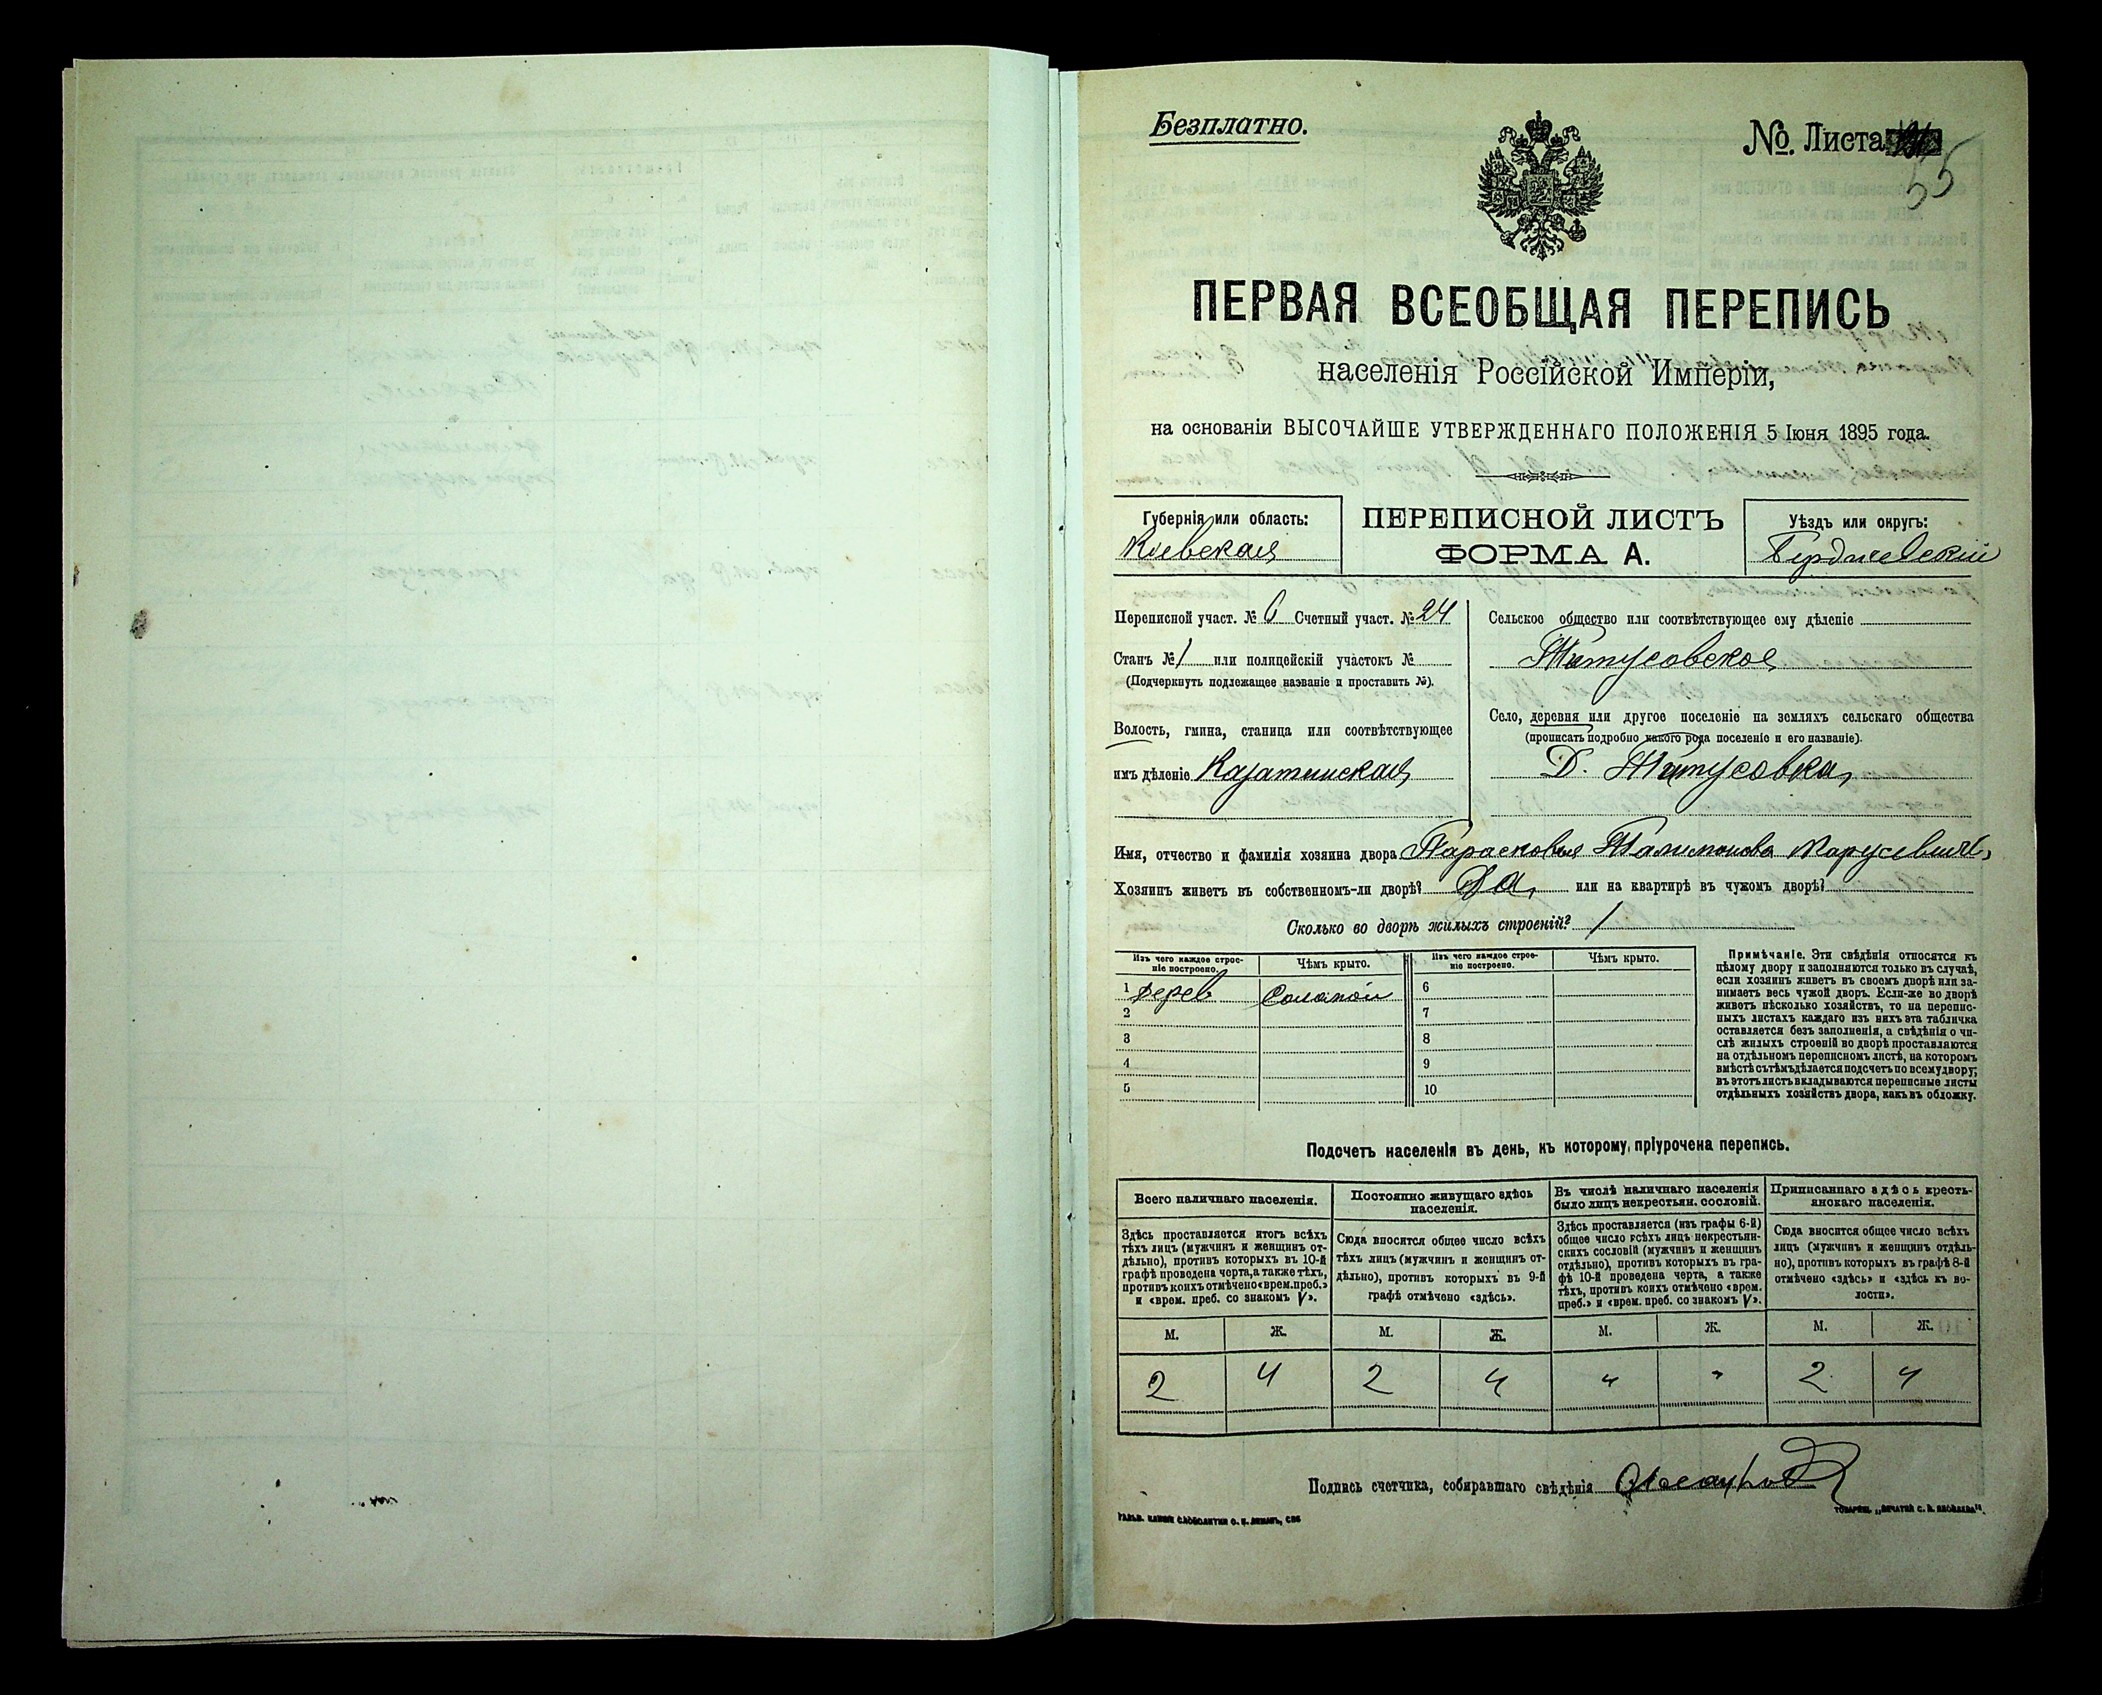 Безплатно.
№. Листа
55
ПЕРВАЯ ВСЕОБЩАЯ ПЕРЕПИСЬ
населенія Россійской Имперіи,
на основаніи ВЫСОЧАЙШЕ УТВЕРЖДЕННАГО ПОЛОЖЕНІЯ 5 Іюня 1895 года.
Губернія или область:
Кіевская
ПЕРЕПИСНОЙ ЛИСТЪ
ФОРМА А.
Уѣздъ или округъ:
Бердичевскій
Переписной участ. № 6 Счетный участ. № 24
Станъ № 1 или полицейскій участокъ №
(Подчеркнуть подлежащее названіе и проставить №).
Волость, гмина, станица или соотвѣтствующее
имъ дѣленіе Казатинская
Сельское общество или соотвѣтствующее ему дѣленіе
Титусовское
Село, деревня или другое поселеніе на земляхъ сельскаго общества
(прописать подробно какого рода поселеніе и его названіе).
Д. Титусовка
Имя, отчество и фамилія хозяина двора Парасковья Талимонова Марусевичъ
Хозяинъ живетъ въ собственномъ-ли дворѣ? Да, или на квартирѣ въ чужомъ дворѣ?
Сколько во дворѣ жилыхъ строеній? 1
Изъ чего каждое строе-
ніе построено.
Чѣмъ крыто.
Изъ чего каждое строе-
ніе построено.
Чѣмъ крыто.
1 дерев Соломой 6
2 7
3 8
4 9
5 10
Примѣчаніе. Эти свѣдѣнія относятся къ
цѣлому двору и заполняются только въ случаѣ,
если хозяинъ живетъ въ своемъ дворѣ или за-
нимаетъ весь чужой дворъ. Если-же во дворѣ
живетъ нѣсколько хозяйствъ, то на перепис-
ныхъ листахъ каждаго изъ нихъ эта табличка
оставляется безъ заполненія, а свѣдѣнія о чи-
слѣ жилыхъ строеній во дворѣ проставляются
на отдѣльномъ переписномъ листѣ, на которомъ
вмѣстѣ съ тѣмъ дѣлается подсчетъ по всему двору;
въ этотъ листъ вкладываются переписные листы
отдѣльныхъ хозяйствъ двора, какъ въ обложку.
Подсчетъ населенія въ день, къ которому пріурочена перепись.
Всего наличнаго населенія.
Постоянно живущаго здѣсь
населенія.
Въ числѣ наличнаго населенія
было лицъ некрестьян. сословій.
Приписаннаго здѣсь кресть-
янскаго населенія.
Здѣсь проставляется итогъ всѣхъ
тѣхъ лицъ (мужчинъ и женщинъ от-
дѣльно), противъ которыхъ въ 10-й
графѣ проведена черта, а также тѣхъ,
противъ коихъ отмѣчено «врем. преб.»
и «врем. преб. со знакомъ V».
Сюда вносится общее число всѣхъ
тѣхъ лицъ (мужчинъ и женщинъ от-
дѣльно), противъ которыхъ въ 9-й
графѣ отмѣчено «здѣсь».
Здѣсь проставляется (изъ графы 6-й)
общее число всѣхъ лицъ некрестьян-
скихъ сословій (мужчинъ и женщинъ
отдѣльно), противъ которыхъ въ гра-
фѣ 10-й проведена черта, а также
тѣхъ, противъ коихъ отмѣчено «врем.
преб.» и «врем. преб. со знакомъ V».
Сюда вносится общее число всѣхъ
лицъ (мужчинъ и женщинъ отдѣль-
но), противъ которыхъ въ графѣ 8-й
отмѣчено «здѣсь» и «здѣсь къ во-
лости».
М. Ж. М. Ж. М. Ж. М. Ж.
2 4 2 4 " " 2 4
Подпись счетчика, собиравшаго свѣдѣнія